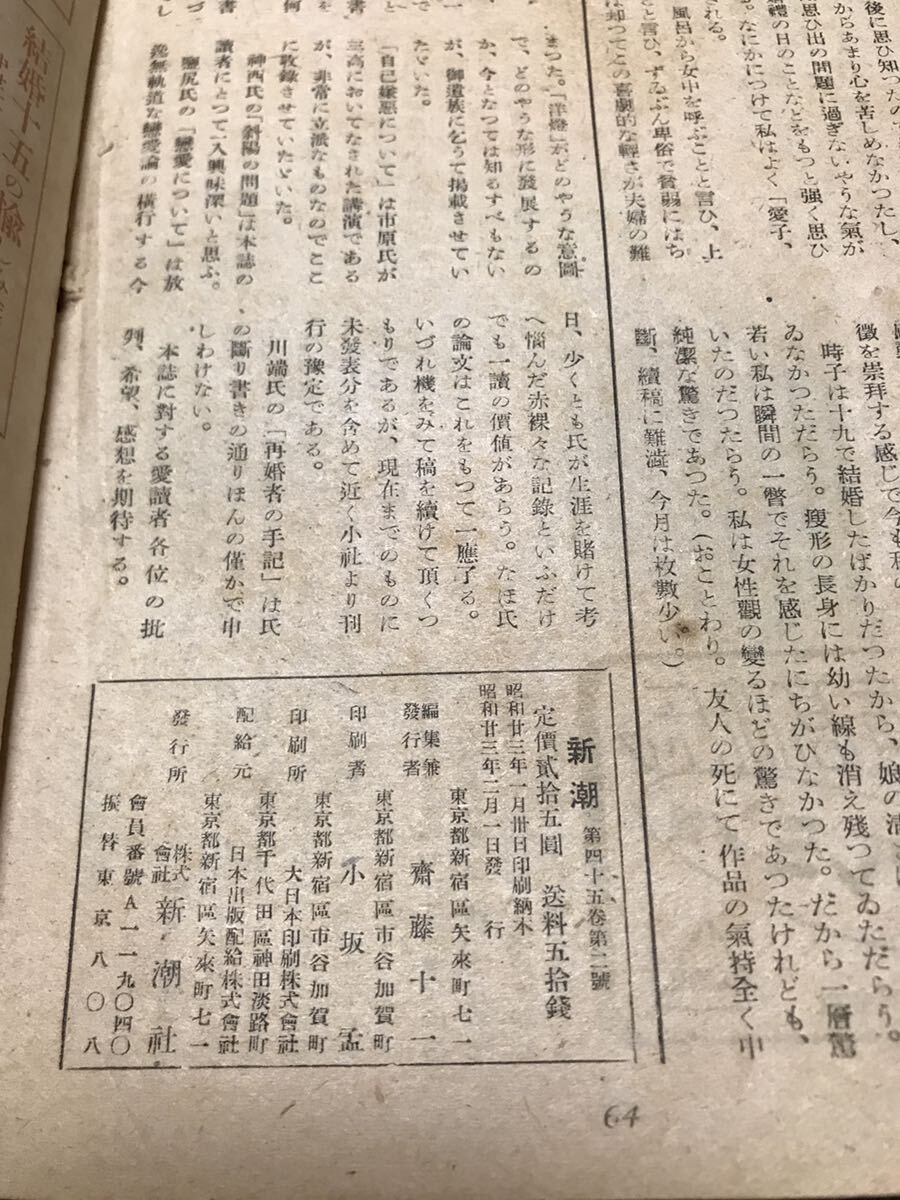 後に思ひ知つたので
からあまり心を苦しめなかつたし、
に思ひ出の問題に過ぎないやうな氣が
婚禮の日のことなどをもつと強く思ひ
る。なにかにつけて私はよく「愛子、
れる。
風呂から女中を呼ぶことと言ひ、上
と言ひ、ずゐぶん卑俗で貧弱にはち
は却つてこの喜劇的な輕さが夫婦の難
徴を崇拝する感じで今も私の
時子は十九で結婚したばかりだつたから、娘の清
ゐなかつただらう。痩形の長身には幼い線も消え殘つてゐただらう。
若い私は瞬間の一瞥でそれを感じたにちがひなかつた。だから一層驚
いたのだつたらう。私は女性觀の變るほどの驚きであつたけれども、
純潔な驚きであつた。(おことわり。友人の死にて作品の氣持全く中
斷、續稿に難澁、今月は枚數少い。)
まつた。「洋燈」がどのやうな意圖
で、どのやうな形に發展するの
か、今となつては知るすべもない
が、御遺族にをうて掲載させてい
たゞいた。
「自己嫌惡について」は市原氏が
三高においてなされた講演である
が、非常に立派なものなのでここ
に收錄させていたゞいた。
神西氏の「斜陽の問題」は本誌の
讀者にとつて一入興味深いと思ふ。
鹽尻氏の「戀愛について」は放
逸無軌道な戀愛論の横行する今
日、少くとも氏が生涯を賭けて考
へ惱んだ赤裸々な記錄といふだけ
でも一讀の價値があらう。なほ氏
の論文はこれをもつて一應了る。
いづれ機をみて稿を續けて頂くつ
もりであるが、現在までのものに
未發表分を含めて近く小社より刊
行の豫定である。
川端氏の「再婚者の手記」は氏
の斷り書きの通りほんの僅かで申
しわけない。
本誌に對する愛讀者各位の批
判、希望、感想を期待する。
新潮 第四十五卷第二號
定價貳拾五圓 送料五拾錢
昭和廿三年一月卅日印刷納本
昭和廿三年二月一日發行
編集兼發行者 東京都新宿區矢來町七一 齋藤十一
印刷者 東京都新宿區市谷加賀町 小坂孟
印刷所 東京都新宿區市谷加賀町 大日本印刷株式會社
配給元 東京都千代田區神田淡路町 日本出版配給株式會社
發行所 東京都新宿區矢來町七一 株式會社 新潮社
會員番號A一一九〇四〇
振替東京八〇八
64
結婚十五の愉しみ